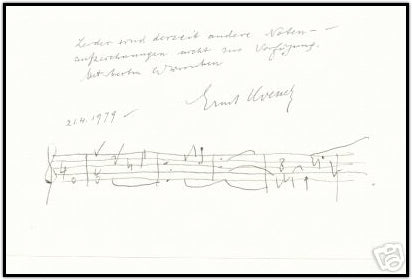 Leider sind derzeit andere Noten-
aufzeichnungen nicht zur Verfügung.
Mit besten Wünschen
Ernst
21.4.1979